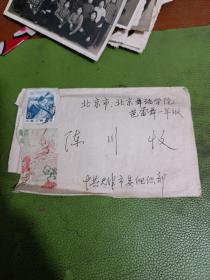 北京市、北京舞蹈学院
芭蕾舞一年级
陈川 收
中共天津市委组织部